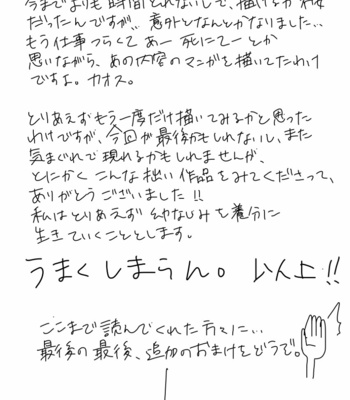 今までよりも時間とれないしで、描けるか不安
だったんですが、意外となんとかなりました‥
もう仕事つらくて あー 死にてーとか
思いながら、あの内容のマンガを描いてたわけ
ですよ。カオス。
とりあえずもう一度だけ描いてみるかと思った
わけですが、今回が最後かもしれないし、また
気まぐれで現れるかもしれませんが、
とにかく こんな拙い作品をみてくださって、
ありがとうございました!!
私はとりあえず 幼なじみを養分に
生きていくこととします。
うまくしまらん。以上!!
ここまで読んでくれた方々に‥
最後の最後、追加のおまけをどうぞ。